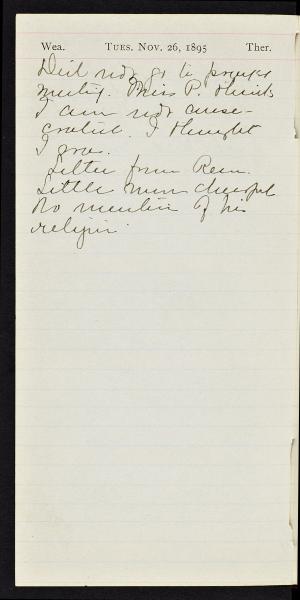 Wea. TUES. NOV. 26, 1895 Ther.
Did not go to prayer
meeting. Miss P. thinks
I am not conse-
crated. I thought
I was.
Letter from Rem.
Little more cheerful
No mention of his
religion.